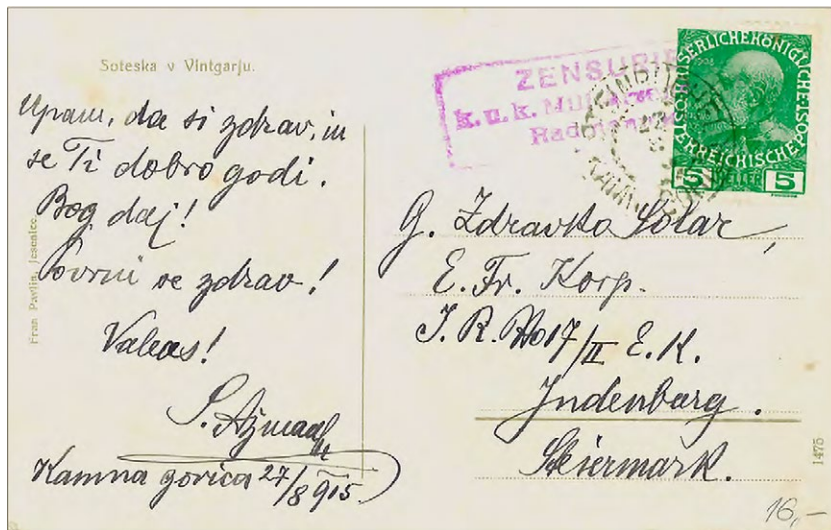 Soteska v Vintgarju.
Upam, da si zdrav, in
se Ti dobro godi.
Bog daj!
Povrni se zdrav!
Valeas!
Kamna gorica 27/8 915.
Fran Pavlin, Jesenice.
ZENSURI
k.u.k. Mil
Rad
KAISERLICHE KÖNIGLICHE
ÖSTERREICHISCHE POST
5 HELLER 5
G. Zdravko Šolar,
E. Fr. Korp.
I. R. No 17/II E. K.
Judenburg.
Steiermark.
1475
16,-